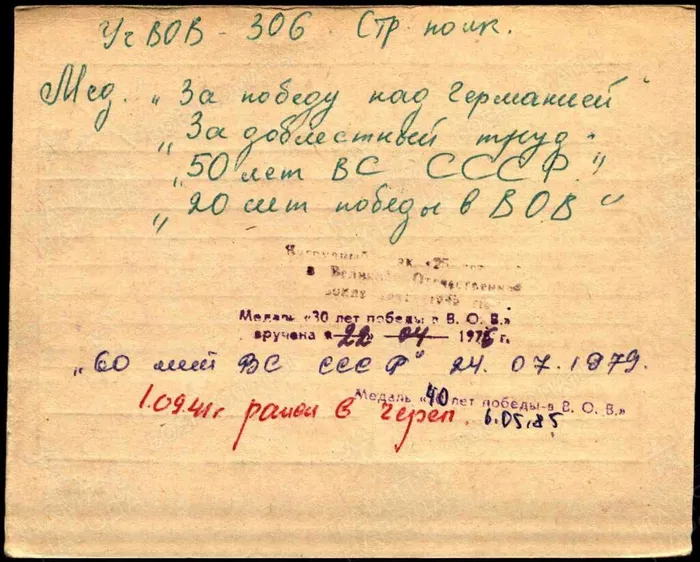 Уч ВОВ - 306 Стр. полк.
Мед. "За победу над Германией"
"За доблестный труд"
"50 лет ВС СССР"
"20 лет победы в ВОВ"
Нагрудный знак «25
в Великой Отечественной
войне
Медаль «30 лет победы в В. О. В.»
вручена « 22 » 04 1976 г.
"60 лет ВС СССР" 24.07.1979.
Медаль «40 лет победы в В. О. В.»
1.09.41г ранен в череп. 6.05.85